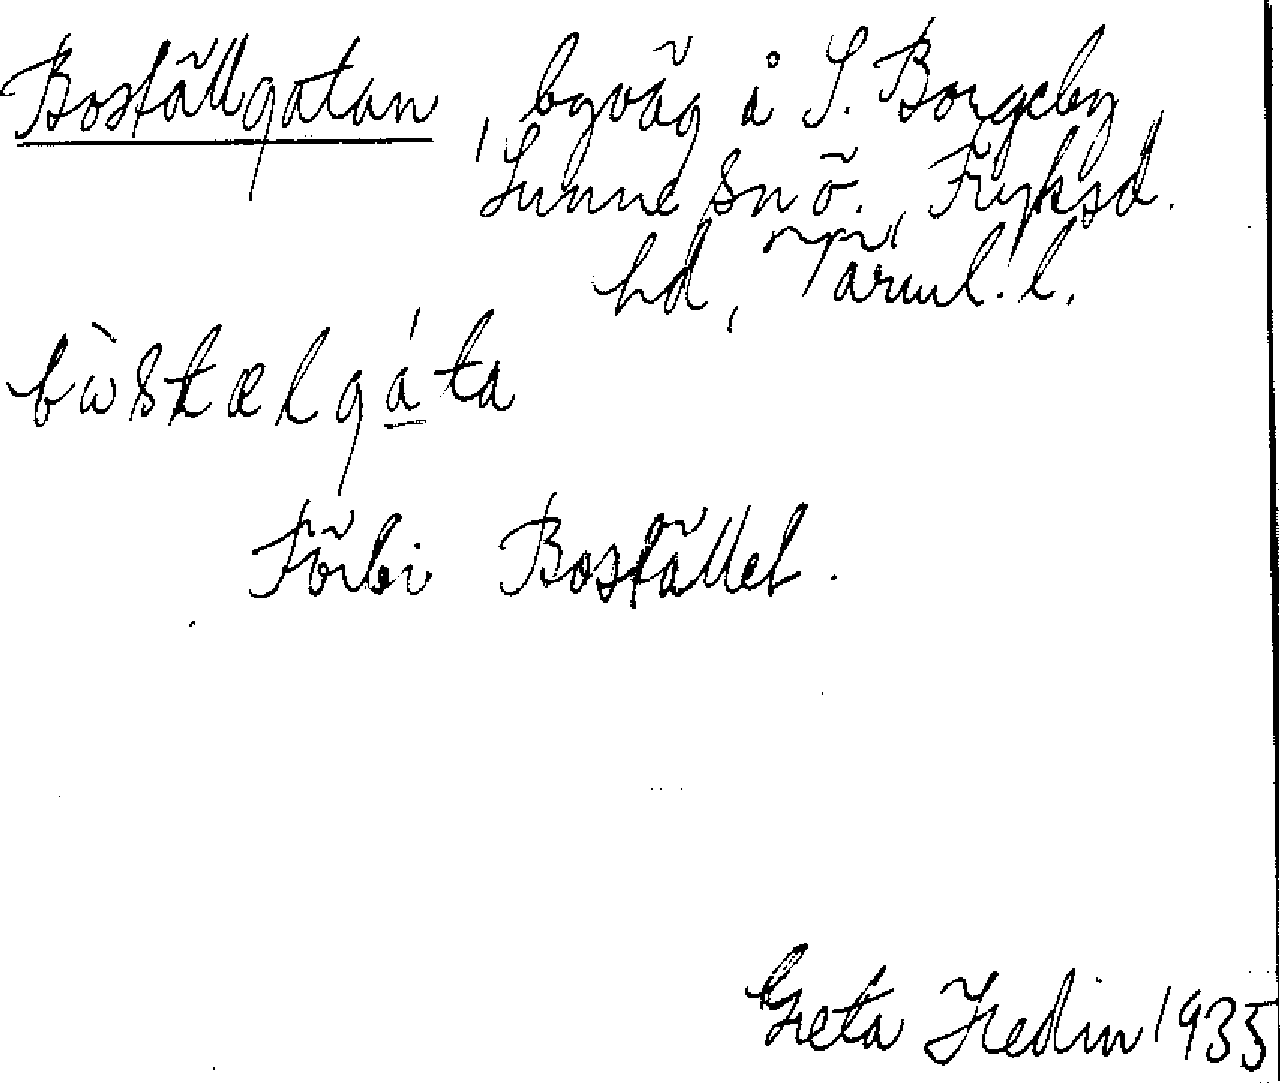 Boställgatan, byväg å S. Borgeby,
Sunne sn ö., Fryksd.
hd, Värml. l.
bὼstælgáta
Förbi Bostället.
Greta Hedin 1935